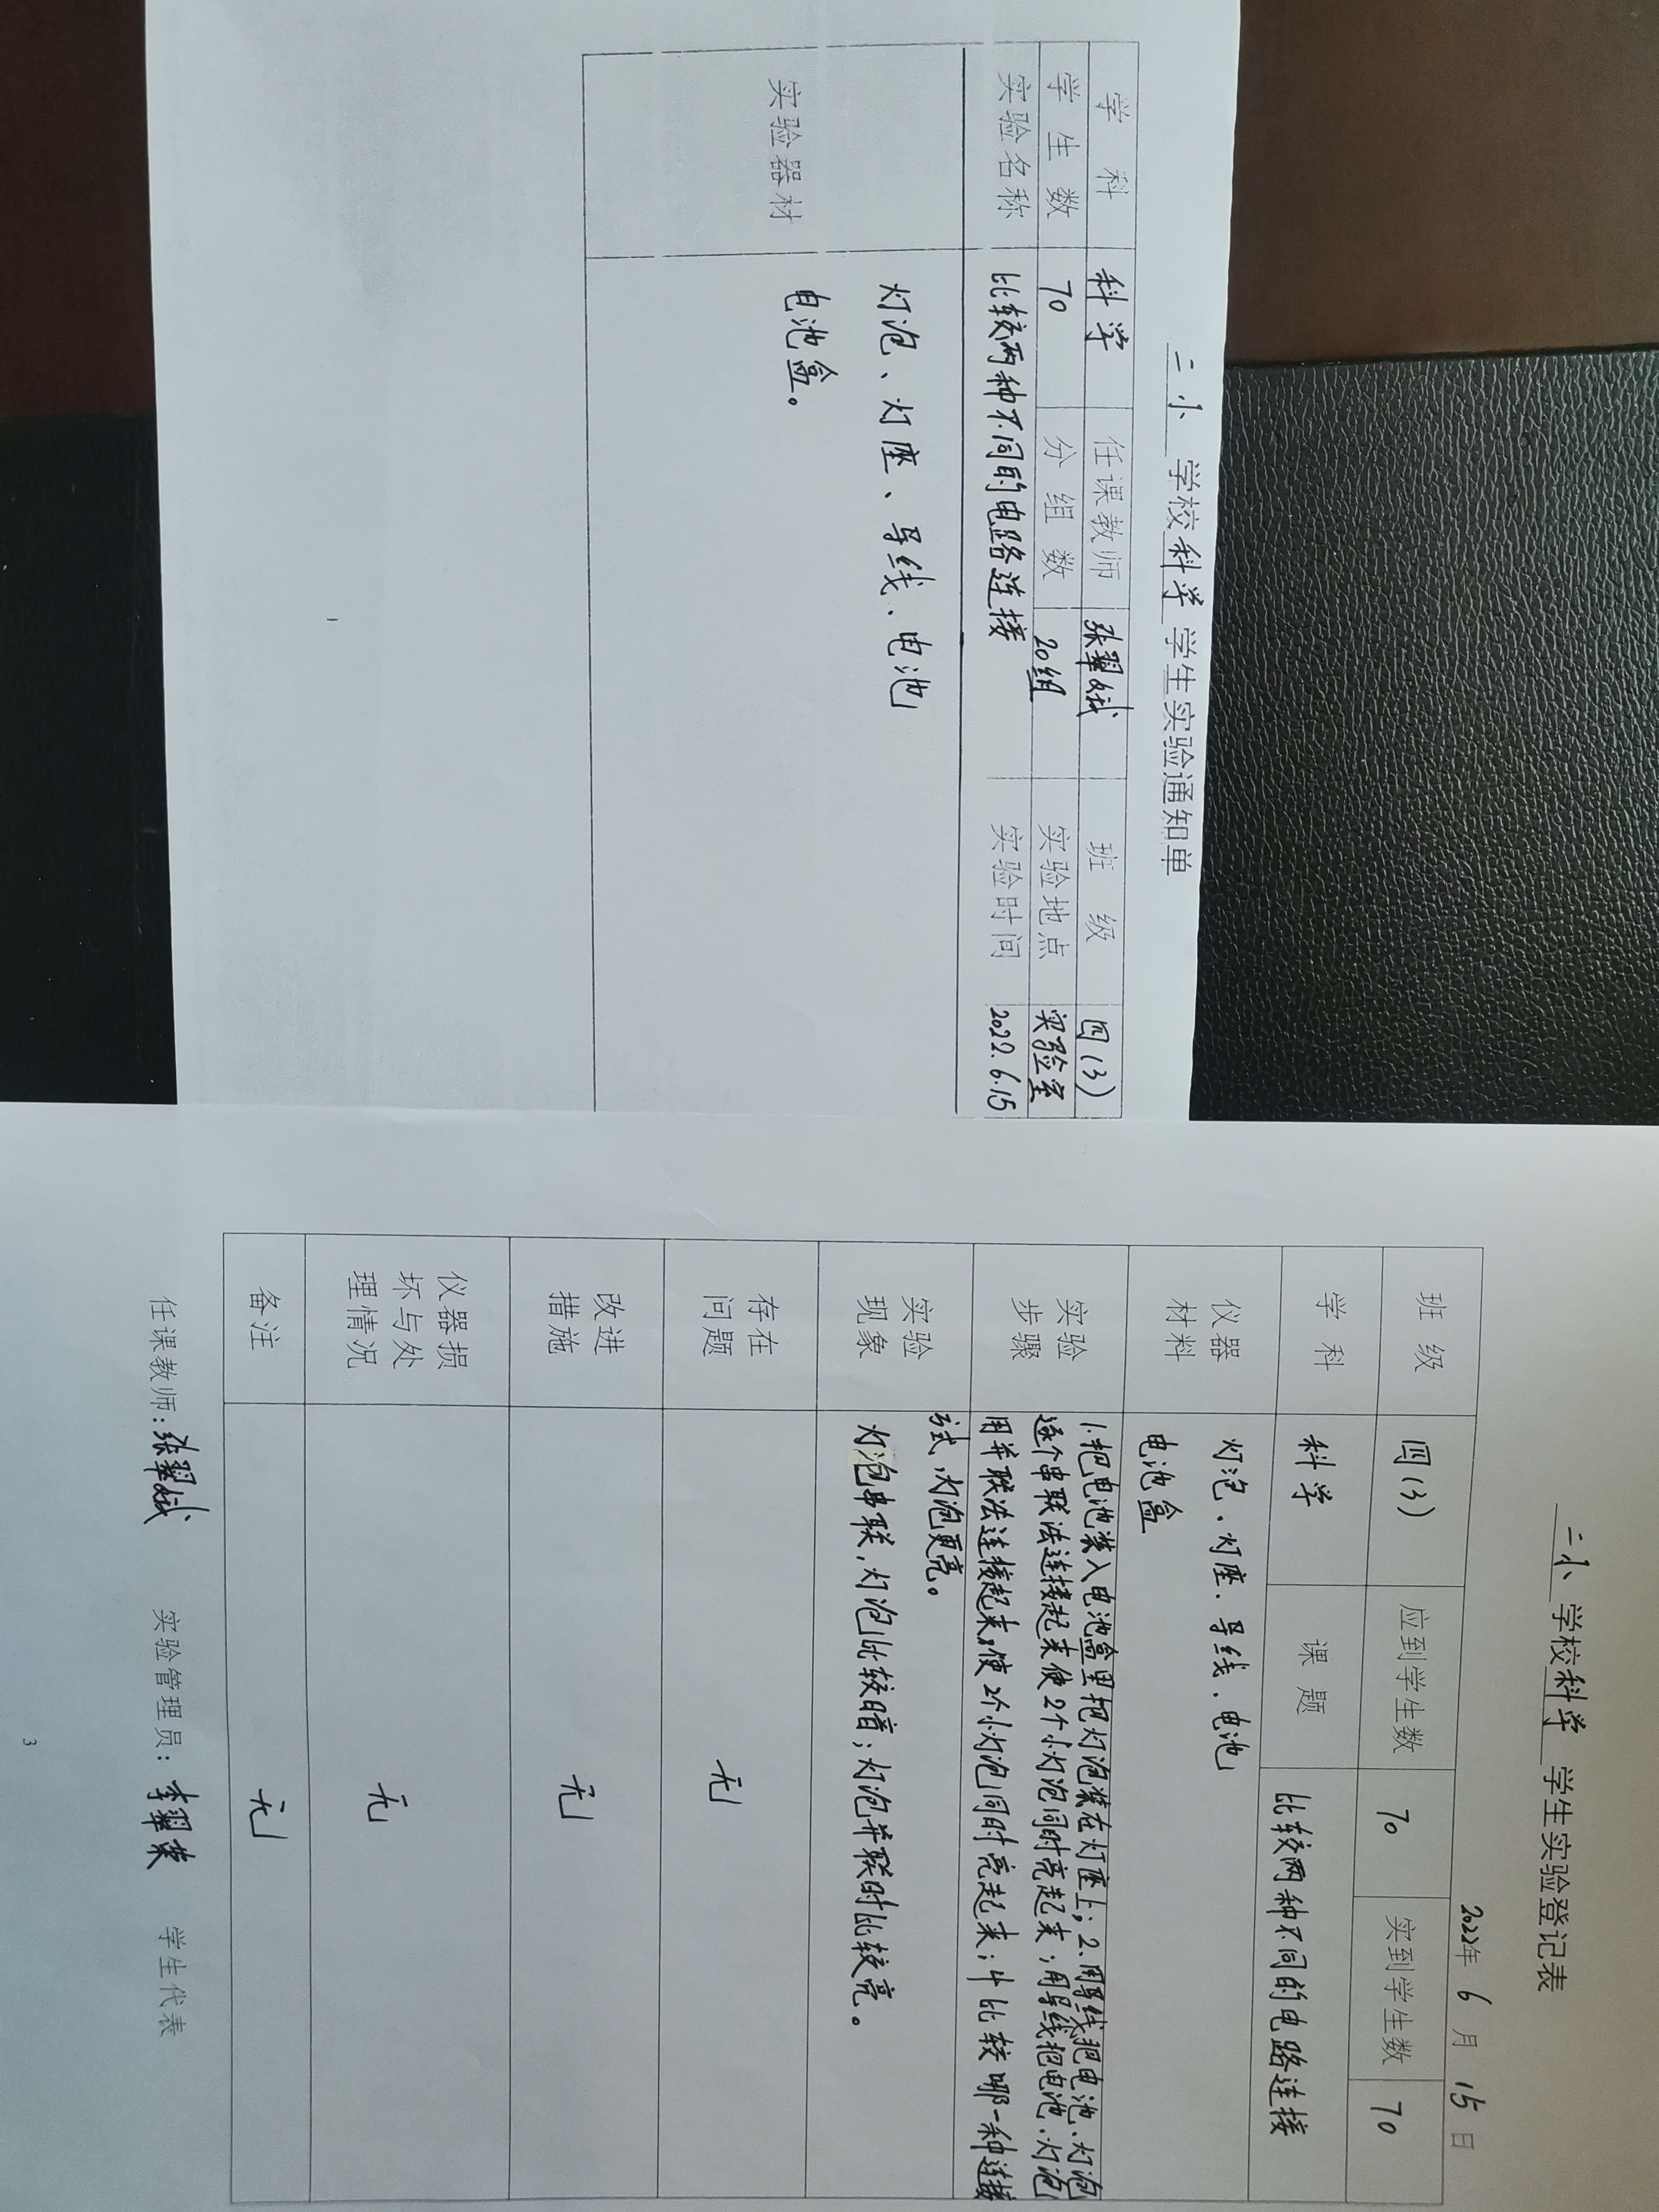 二小 学校 科学 学生实验通知单
学 科 科学 任课教师 张翠斌 班 级 四(3)
学 生 数 70 分 组 数 20组 实验地点 实验室
实验名称 比较两种不同的电路连接 实验时间 2022.6.15
实验器材 灯泡、灯座、导线、电池
电池盒。
二小 学校 科学 学生实验登记表
2022年 6 月 15 日
班 级 四(3) 应到学生数 70 实到学生数 70
学 科 科学 课 题 比较两种不同的电路连接
仪器材料 灯泡、灯座、导线、电池
电池盒
实验步骤 1.把电池装入电池盒里把灯泡装在灯座上；2.用导线把电池、灯泡
逐个串联法连接起来使2个小灯泡同时亮起来；用导线把电池、灯泡
用并联法连接起来,使2个小灯泡同时亮起来；4比较哪一种连接
方式,灯泡更亮。
实验现象 灯泡串联,灯泡比较暗；灯泡并联时比较亮。
存在问题 无
改进措施 无
仪器损坏与处理情况 无
备注 无
任课教师:张翠斌 实验管理员:李翠荣 学生代表
3